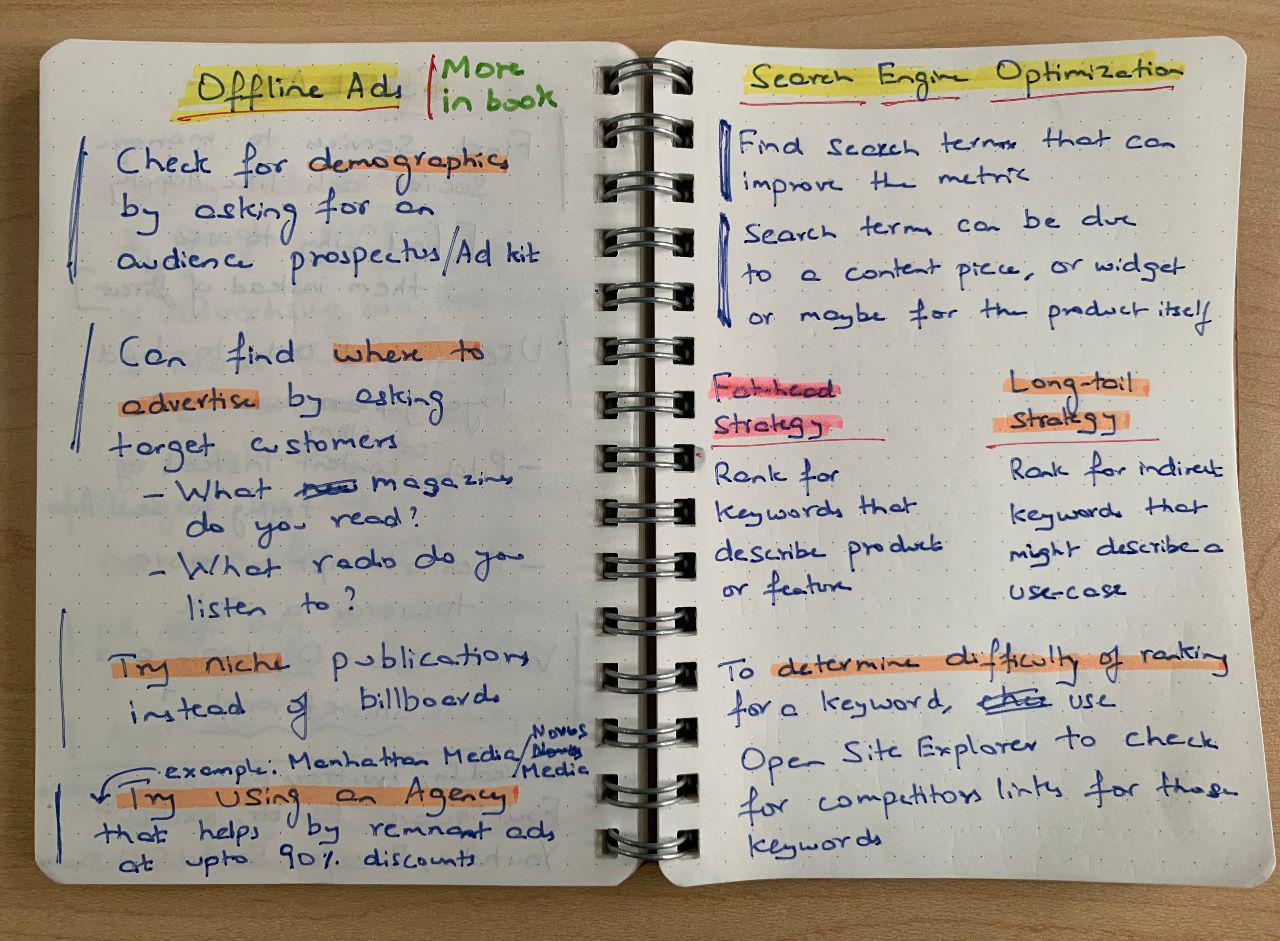 Offline Ads
More
in book
Check for demographics
by asking for an
audience prospectus/Ad kit
Can find where to
advertise by asking
target customers
- What magazines
do you read?
- What radio do you
listen to?
Try niche publications
instead of billboards
example: Manhattan Media/Novus
Media
Try using an Agency
that helps by remnant ads
at upto 90% discounts
Search Engine Optimization
Find search terms that can
improve the metric
Search terms can be due
to a content piece, or widget
or maybe for the product itself
Fat-head
Strategy
Rank for
keywords that
describe product
or feature
Long-tail
strategy
Rank for indirect
keywords that
might describe a
use-case
To determine difficulty of ranking
for a keyword, use
Open Site Explorer to check
for competitors links for those
keywords